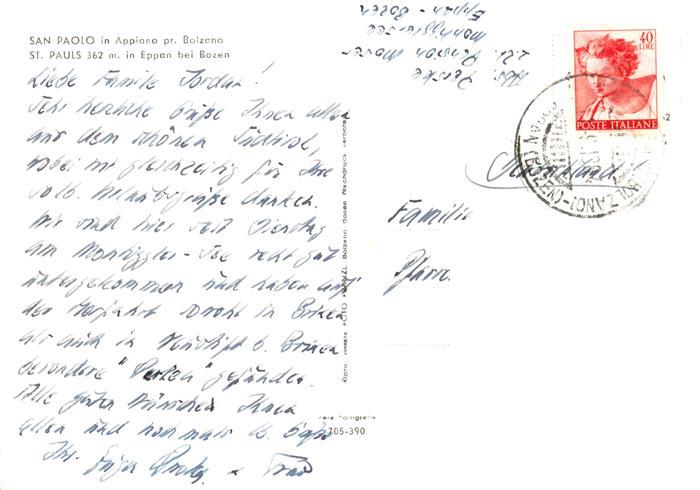 SAN PAOLO in Appiano pr. Bolzano
ST. PAULS 362 m. in Eppan bei Bozen
Liebe Familie Jordan!
Sehr herzliche Grüße Ihnen allen
aus dem schönen Südtirol,
wobei wir gleichzeitig für Ihre
Urlaubsgrüße danken.
Wir sind hier seit Dienstag
am Montiggler-See recht gut
untergekommen und haben auf
der Herfahrt sowohl in Brixen
als auch in Neustift b. Brixen
besondere "Perlen" gefunden.
Alle guten Wünsche Ihnen
allen und nochmals lb. Grüße
Ihr
Abs.
Pension
Montigglersee
Eppan - Bozen
40
LIRE
POSTE ITALIANE
Deutschland
Familie
Pfarr.
FOTO
Bolzano Bozen Nachdruck verboten
705-390